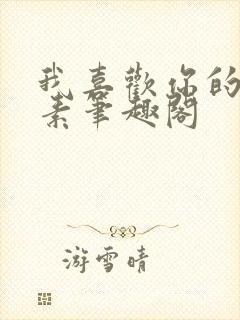 我喜歡你的
素筆趣閣
游雪晴